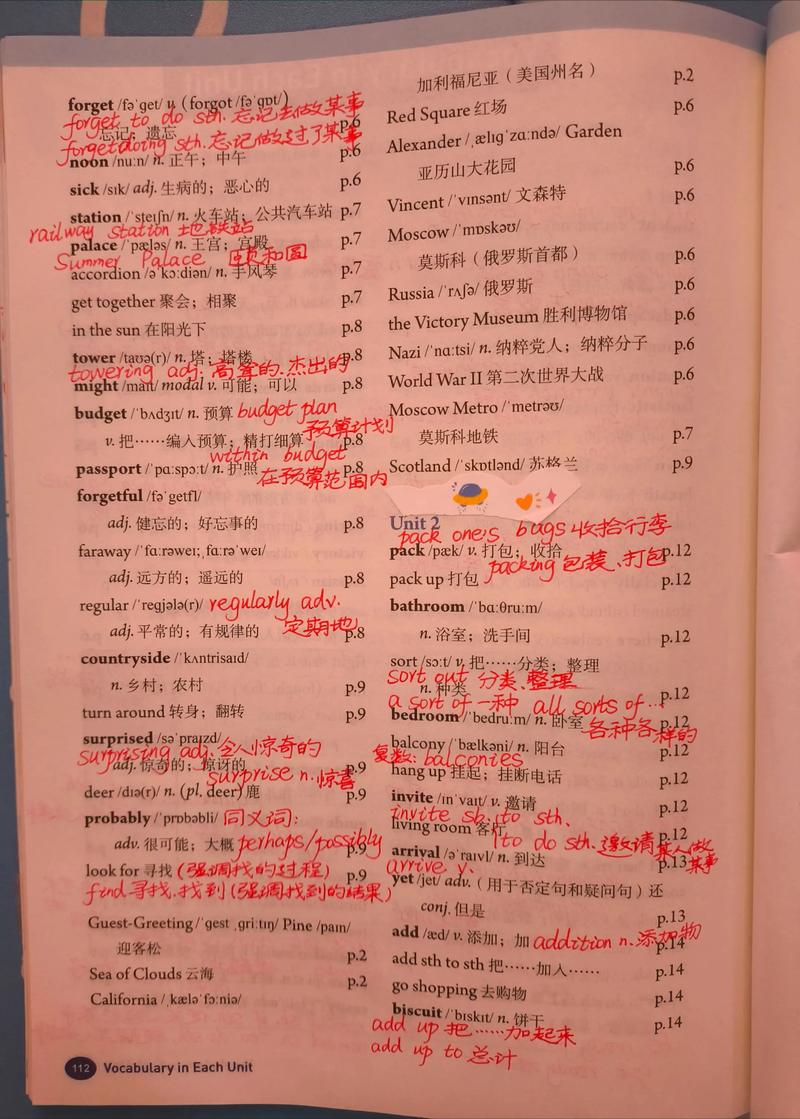 forget /fəˈɡet/ v. (forgot /fəˈɡɒt/)
forget to do sth. 忘记去做某事
忘记；遗忘 p.6
forget doing sth. 忘记做过了某事
noon /nuːn/ n. 正午；中午 p.6
sick /sɪk/ adj. 生病的；恶心的 p.6
station /ˈsteɪʃn/ n. 火车站；公共汽车站 p.7
railway station 地铁站
palace /ˈpæləs/ n. 王宫；宫殿 p.7
Summer Palace 颐和园
accordion /əˈkɔːdiən/ n. 手风琴 p.7
get together 聚会；相聚 p.7
in the sun 在阳光下 p.8
tower /taʊə(r)/ n. 塔；塔楼 p.8
towering adj. 高耸的.杰出的
might /maɪt/ modal v. 可能；可以 p.8
budget /ˈbʌdʒɪt/ n. 预算 budget plan
预算计划
v. 把……编入预算；精打细算 p.8
within budget
passport /ˈpɑːspɔːt/ n. 护照 p.8
在预算范围内
forgetful /fəˈɡetfl/
adj. 健忘的；好忘事的 p.8
faraway /ˈfɑːrəweɪ; ˌfɑːrəˈweɪ/
adj. 远方的；遥远的 p.8
regular /ˈreɡjələ(r)/ regularly adv.
定期地
adj. 平常的；有规律的 p.8
countryside /ˈkʌntrisaɪd/
n. 乡村；农村 p.9
turn around 转身；翻转 p.9
surprised /səˈpraɪzd/
surprising adj. 令人惊奇的
adj. 惊奇的；惊讶的 p.9
surprise n. 惊喜
deer /dɪə(r)/ n. (pl. deer) 鹿 p.9
probably /ˈprɒbəbli/ 同义词:
adv. 很可能；大概 perhaps/possibly p.9
look for 寻找 (强调找的过程) p.9
find 寻找.找到(强调找到的结果)
Guest-Greeting /ˈɡest ˌɡriːtɪŋ/ Pine /paɪn/
迎客松 p.2
Sea of Clouds 云海 p.2
California /ˌkæləˈfɔːniə/
112 Vocabulary in Each Unit
加利福尼亚（美国州名） p.2
Red Square 红场 p.6
Alexander /ˌælɪɡˈzɑːndə/ Garden
亚历山大花园 p.6
Vincent /ˈvɪnsənt/ 文森特 p.6
Moscow /ˈmɒskəʊ/
莫斯科（俄罗斯首都） p.6
Russia /ˈrʌʃə/ 俄罗斯 p.6
the Victory Museum 胜利博物馆 p.6
Nazi /ˈnɑːtsi/ n. 纳粹党人；纳粹分子 p.6
World War II 第二次世界大战 p.6
Moscow Metro /ˈmetrəʊ/
莫斯科地铁 p.7
Scotland /ˈskɒtlənd/ 苏格兰 p.9
Unit 2
pack one's bags 收拾行李
pack /pæk/ v. 打包；收拾 p.12
packing 包装、打包
pack up 打包 p.12
bathroom /ˈbɑːθruːm/
n. 浴室；洗手间 p.12
sort /sɔːt/ v. 把……分类；整理
sort out 分类、整理
n. 种类 p.12
a sort of 一种 all sorts of …
各种各样的
bedroom /ˈbedruːm/ n. 卧室 p.12
balcony /ˈbælkəni/ n. 阳台 p.12
复数: balconies
hang up 挂起；挂断电话 p.12
invite /ɪnˈvaɪt/ v. 邀请 p.12
invite sb. to sth.
living room 客厅 p.12
/to do sth. 邀请某人做某事
arrival /əˈraɪvl/ n. 到达 p.13
arrive v.
yet /jet/ adv.（用于否定句和疑问句）还
conj. 但是 p.13
add /æd/ v. 添加；加 addition n. 添加物 p.14
add sth to sth 把……加入…… p.14
go shopping 去购物 p.14
biscuit /ˈbɪskɪt/ n. 饼干 p.14
add up 把……加起来
add up to 总计